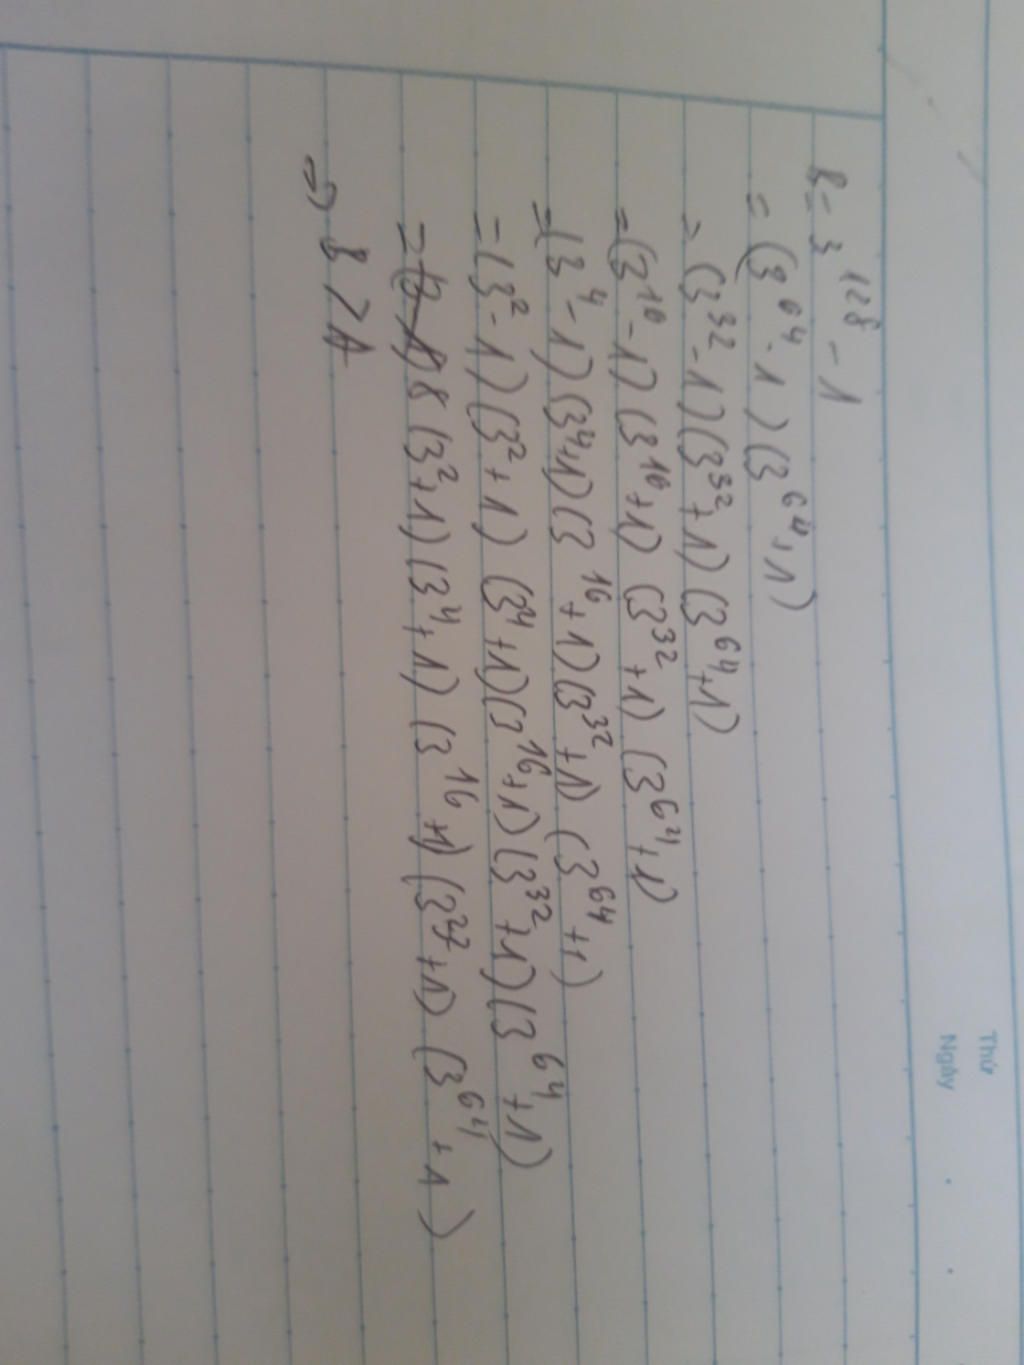 Thứ
Ngày
B = 3^128 - 1
= (3^64 - 1)(3^64 + 1)
= (3^32 - 1)(3^32 + 1)(3^64 + 1)
= (3^16 - 1)(3^16 + 1)(3^32 + 1)(3^64 + 1)
= (3^4 - 1)(3^4 + 1)(3^16 + 1)(3^32 + 1)(3^64 + 1)
= (3^2 - 1)(3^2 + 1)(3^4 + 1)(3^16 + 1)(3^32 + 1)(3^64 + 1)
= 8(3^2 + 1)(3^4 + 1)(3^16 + 1)(3^32 + 1)(3^64 + 1)
⇒ B > A